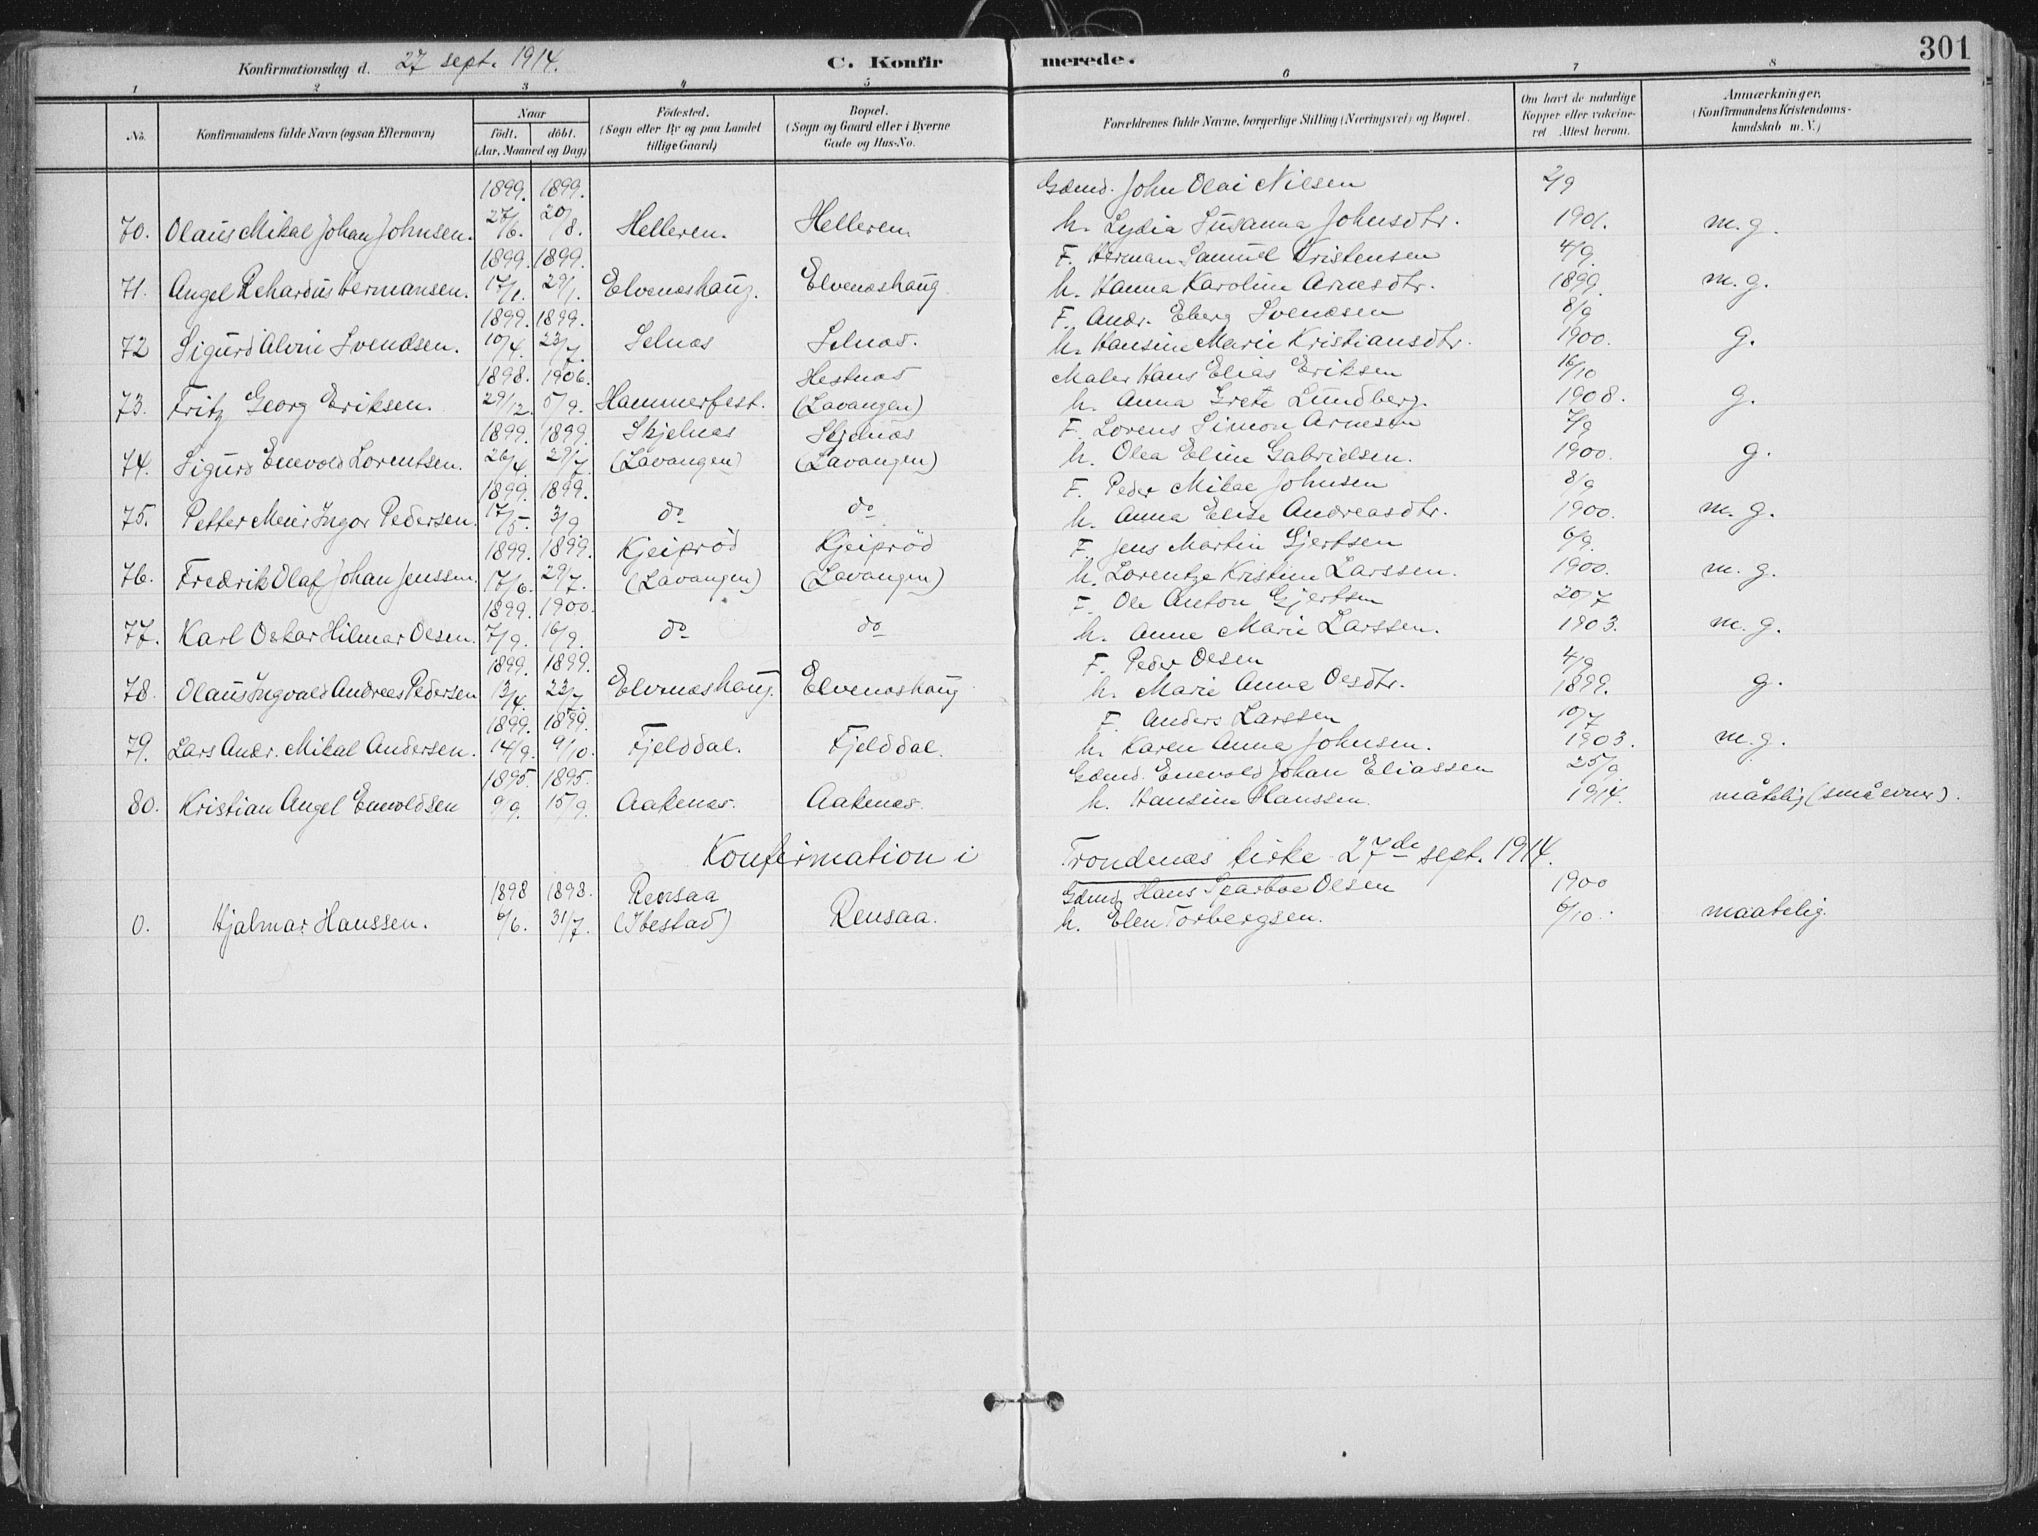 301
Konfirmationsdag d. 27 sept. 1914.
C. Konfirmerede.
1 2 3 4 5 6 7 8
No.
Konfirmandens fulde Navn (ogsaa Efternavn)
Naar
født. døbt.
(Aar, Maaned og Dag)
Fødested.
(Sogn eller By og paa Landet
tillige Gaard)
Bopæl.
(Sogn og Gaard eller i Byerne
Gade og Hus-No.
Forældrenes fulde Navne, borgerlige Stilling (Næringsvei) og Bopæl.
Om havt de naturlige
Kopper eller vakcine-
ret Attest herom.
Anmærkninger.
(Konfirmandens Kristendoms-
kundskab m. V.)
1899. 1899. Gdmd. John Olai Nilsen 2/9
70. Olaus Mikal Johan Johnsen. 27/6. 20/8. Helleren. Helleren. h. Lydia Susanna Johnsdtr. 1901. m.g.
1899. 1899. F. Herman Samuel Kristensen 4/9.
71. Angel Rehardus Hermansen. 17/1. 29/1. Elvenæshaug. Elvenæshaug. h. Hanna Karoline Arnesdtr. 1899. m.g.
1899. 1899. F. Andr. Eberg Svendsen 8/9
72 Sigurd Alvin Svendsen. 10/4. 23/7. Selnæs Selnæs. h. Hansine Marie Kristiansdtr. 1900. g.
1898. 1906. Hestnæs Maler Hans Elias Eriksen 16/10
73. Fritz Georg Eriksen. 29/12. 5/9. Hammerfest. (Lavangen) h. Anna Grete Lundberg. 1908. g.
1899. 1899. Skjelnæs Skjelnæs F. Lorens Simon Arnesen 7/9
74. Sigurd Enevold Lorentsen. 26/4. 29/7. (Lavangen) (Lavangen) h. Olea Eline Gabrielsen. 1900. g.
1899. 1899. F. Peder Mikal Johnsen 8/9
75. Petter Meier Ingor Pedersen. 17/5. 3/9. do do h. Anna Elise Andreasdtr. 1900. m.g.
1899. 1899. Kjeiprød Kjeiprød F. Jens Martin Gjertsen 6/9.
76. Fredrik Olaf Johan Jenssen. 17/6. 29/7. (Lavangen) (Lavangen) h. Lorentze Kristine Larssen. 1900. m.g.
1899. 1900. F. Ole Anton Gjertsen 20/7
77. Karl Oskar Hilmar Olsen. 7/9. 16/9. do do h. Anne Marie Larssen. 1903. m.g.
1899. 1899. F. Peder Olsen 4/9
78. Olaus Ingvald Andreas Pedersen 13/4. 23/7. Elvenæshaug. Elvenæshaug h. Marie Anna Olsdtr. 1899. g.
1899. 1899. F. Anders Larssen 10/7
79. Lars Andr. Mikal Andersen. 14/9. 9/10. Fjelddal. Fjelddal. h. Karen Anna Johnsen. 1903. m.g.
1895. 1895. Gdmd. Enevold Johan Eliassen 25/9.
80. Kristian Angel Enevoldsen 9/9. 15/9. Aakenæs. Aakenæs. h. Hansine Hanssen. 1914. måtelig (små evner).
Konfirmation i Trondenæs kirke 27de sept. 1914.
1898 1898. Rensaa Gdmd. Hans Sparboe Olsen 1900
0. Hjalmar Hanssen. 6/6. 31/7. (Ibestad) Rensaa. h. Elen Torbergsen. 6/10. maatelig.